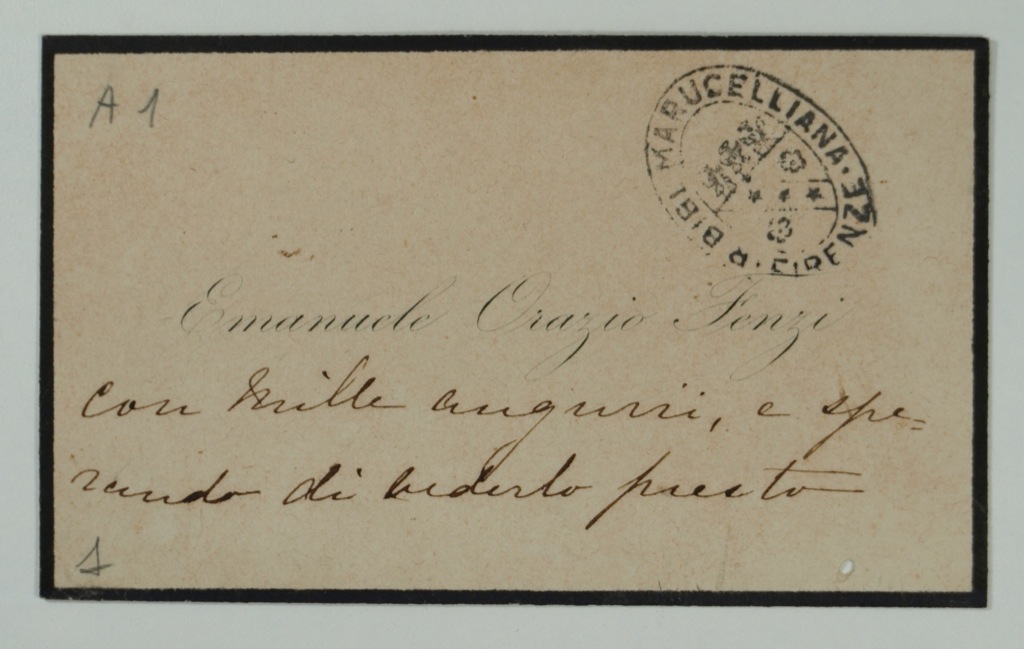 A 1
R. BIBL. MARUCELLIANA · FIRENZE
Emanuele Orazio Fenzi
con mille augurii, e spe=
rando di vederlo presto
1